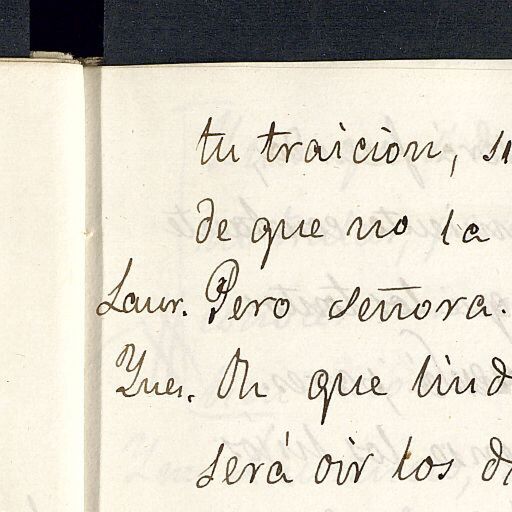 tu traicion, si
de que no la
Laur. Pero señora.
Ynes. Oh que lind
será oir los di